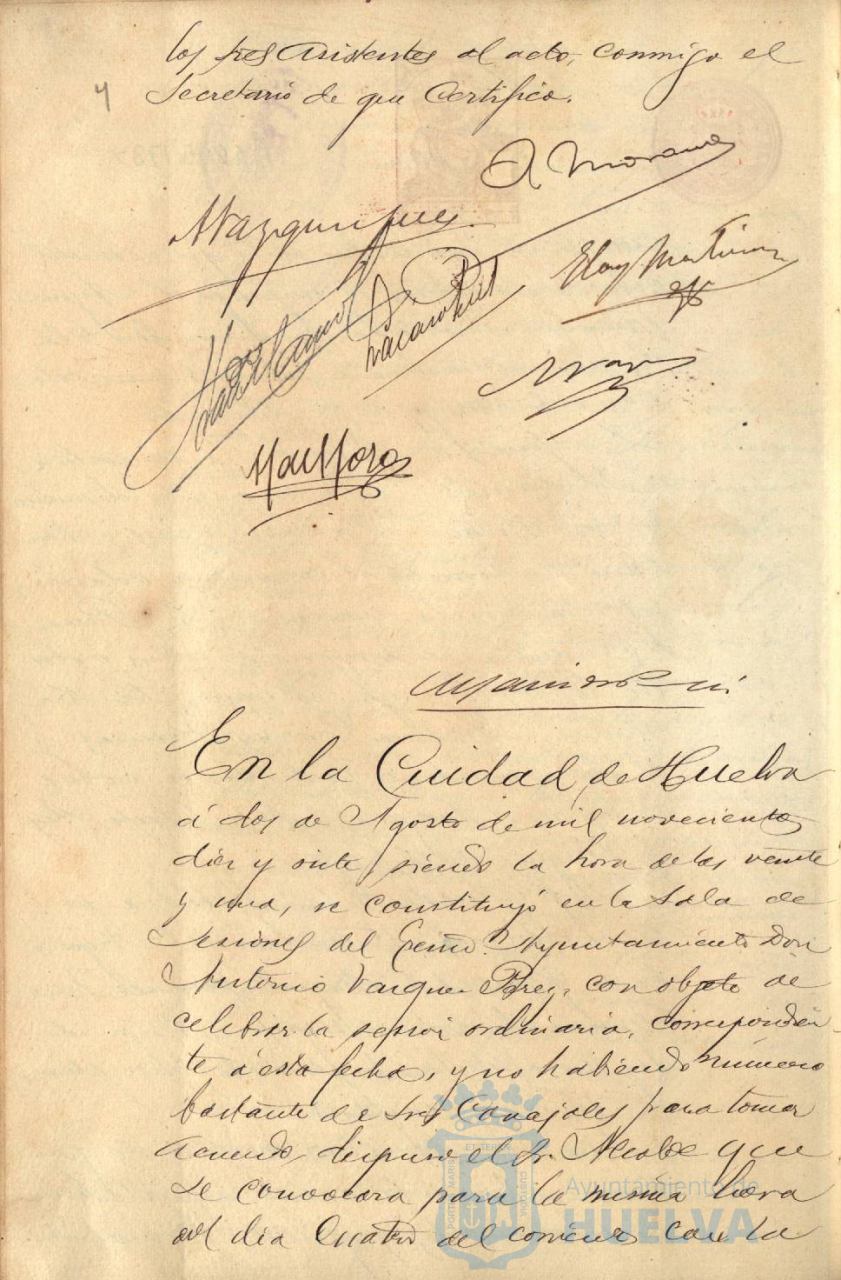 4
los sres asistentes al acto, conmigo el
Secretario de que Certifico.
A Morano
Eloy Martinez
En la Ciudad, de Huelva
á dos de Agosto de mil novecientos
diez y siete, siendo la hora de las veinte
y una, se constituyó en la Sala de
sesiones del Excmo. Ayuntamiento Don
Antonio Vazquez Perez, con objeto de
celebrar la sesion ordinaria, correspondien-
te á esta fecha, y no habiendo número
bastante de Sres Concejales para tomar
acuerdo, dispuso el Sr. Alcalde que
se convocara para la misma hora
del dia Cuatro del corriente con la
Ayuntamiento de
HUELVA